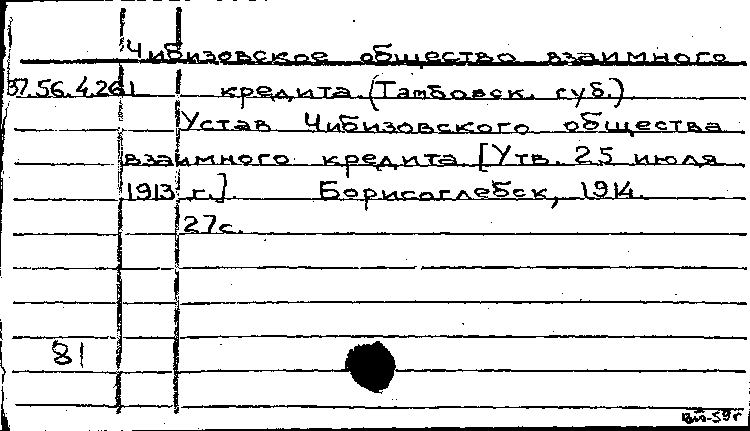 Чибизовское общество взаимного
37.56.4.261 кредита (Тамбовск. губ.)
Устав Чибизовского общества
взаимного кредита [Утв. 25 июля
1913 г.]. Борисоглебск, 1914.
27с.
81